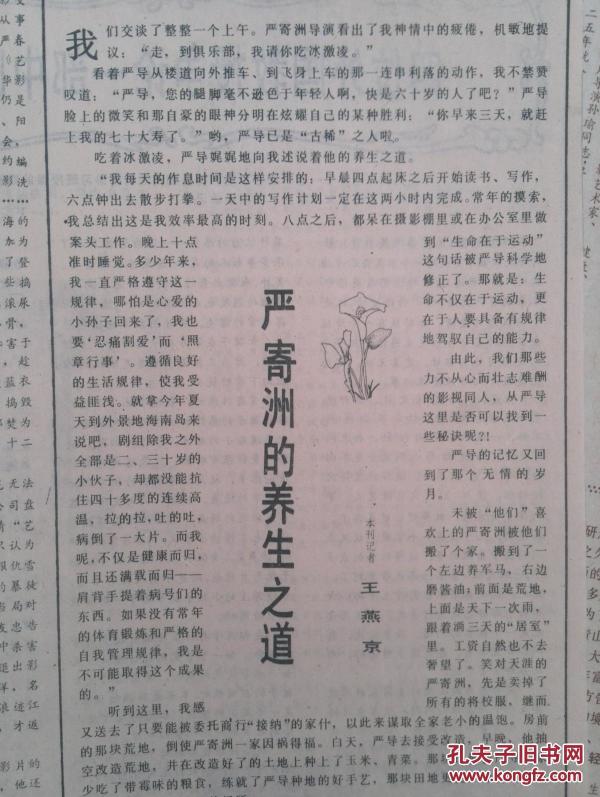 我们交谈了整整一个上午。严寄洲导演看出了我神情中的疲倦,机敏地提
议:“走,到俱乐部,我请你吃冰激凌。”
看着严导从楼道向外推车、到飞身上车的那一连串利落的动作,我不禁赞
叹道:“严导,您的腿脚毫不逊色于年轻人啊,快是六十岁的人了吧?”严导
脸上的微笑和那自豪的眼神分明在炫耀自己的某种胜利:“你早来三天,就赶
上我的七十大寿了。”哟,严导已是“古稀”之人啦。
吃着冰激凌,严导娓娓地向我述说着他的养生之道。
“我每天的作息时间是这样安排的:早晨四点起床之后开始读书、写作,
六点钟出去散步打拳。一天中的写作计划一定在这两小时内完成。常年的摸索,
我总结出这是我效率最高的时刻。八点之后,都呆在摄影棚里或在办公室里做
案头工作。晚上十点
准时睡觉。多少年来,
我一直严格遵守这一
规律,哪怕是心爱的
小孙子回来了,我也
要‘忍痛割爱’而‘照
章行事’。遵循良好
的生活规律,使我受
益匪浅。就拿今年夏
天到外景地海南岛来
说吧,剧组除我之外
全部是二、三十岁的
小伙子,却都没能抗
住四十多度的连续高
温,拉的拉,吐的吐,
病倒了一大片。而我
呢,不仅是健康而归,
而且还满载而归——
肩背手提着病号们的
东西。如果没有常年
的体育锻炼和严格的
自我管理规律,我是
不可能取得这个成果
的。”
听到这里,我感
严寄洲的养生之道
本刊记者
王燕京
到“生命在于运动”
这句话被严导科学地
修正了。那就是:生
命不仅在于运动,更
在于人要具备有规律
地驾驭自己的能力。
由此,我们那些
力不从心而壮志难酬
的影视同人,从严导
这里是否可以找到一
些秘诀呢?!
严导的记忆又回
到了那个无情的岁
月。
未被“他们”喜
欢上的严寄洲被他们
搬了个家。搬到了一
个左边养军马,右边
磨酱油;前面是荒地,
上面是天下一次雨,
跟着滴三天的“居室”
里。工资自然也不去
奢望了。笑对天涯的
严寄洲,先是卖掉了
所有的将校服,继而
又送去了只要能被委托商行“接纳”的家什,以此来谋取全家老小的温饱。房前
的那块荒地,倒使严寄洲一家因祸得福。白天,严导去接受改造,早晚,他抽
空改造荒地,并在改造好了的土地上种上了玉米、青菜。那
少吃了带霉味的粮食,练就了严导种地的好手艺,那块田地更
孔夫子旧书网
www.kongfz.com